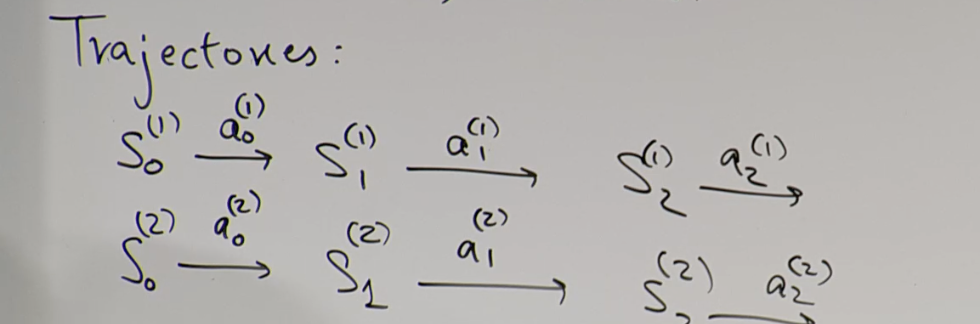 Trajectories:
S₀⁽¹⁾ a₀⁽¹⁾→ S₁⁽¹⁾ a₁⁽¹⁾→ S₂⁽¹⁾ a₂⁽¹⁾→
S₀⁽²⁾ a₀⁽²⁾→ S₁⁽²⁾ a₁⁽²⁾→ S₂⁽²⁾ a₂⁽²⁾→